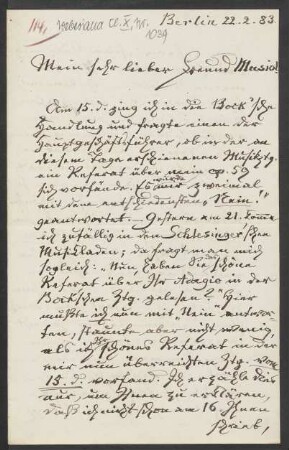 114. Weberiana Cl. X, Nr. 1039
Berlin 22.2.83
Mein sehr lieber Freund Musiol!
Am 15. d. ging ich in die Bock'sche
Handlung und fragte einen der
Hauptgeschäftsführer, ob in der an
diesem Tage erschienenen Musikztg.
ein Referat über mein op. 59
sich vorfände. Es wurde zweimal
mit dem entschiedensten "Nein!"
geantwortet. – Gestern am 21. komme
ich zufällig in den Schlesinger'schen
Musikladen; da fragt man mich
sogleich: "Nun haben Sie das schöne
Referat über Ihr Adagio in der
Bock'schen Ztg. gelesen?" Hier
mußte ich nun mit "Nein" antwor-
ten, staunte aber nicht wenig,
als ich Ihr schönes Referat in der
mir nun überreichten Ztg. vom
15. d. vorfand. Ich erzähle dies
nur, um Ihnen zu erklären,
daß ich nicht schon am 16. Ihnen
schrieb,